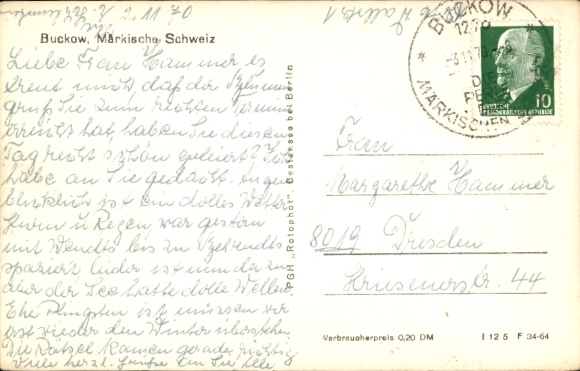 2.11.70
Buckow, Märkische Schweiz
Liebe Frau Hammer es
freut mich daß der Blumen
gruß Sie zum rechten Termin
erreicht hat, haben Sie diesen
Tag recht schön gefeiert? Ich
habe an Sie gedacht. Augen
blicklich ist ein dolles Wetter
Sturm u Regen, war gestern
mit Wendts bis zu
spaziert leider ist nun der
aber der See hatte dolle Wellen
Ehe Pfingsten ist müssen wir
erst wieder den Winter überstehen
Die Rätsel kamen gerade richtig
viele herzl. Grüße an Sie alle
PGH „Rotophot“, Bestensee bei Berlin
BUCKOW
1279
-3.11.70-8
DIE
PERLE
MÄRKISCHEN
DEUTSCHE
DEMOKRATISCHE REPUBLIK
10
Frau
Margarethe Hammer
8019 Dresden
Hüblerstr. 44
Verbraucherpreis 0,20 DM
I 12 5 F 34-64